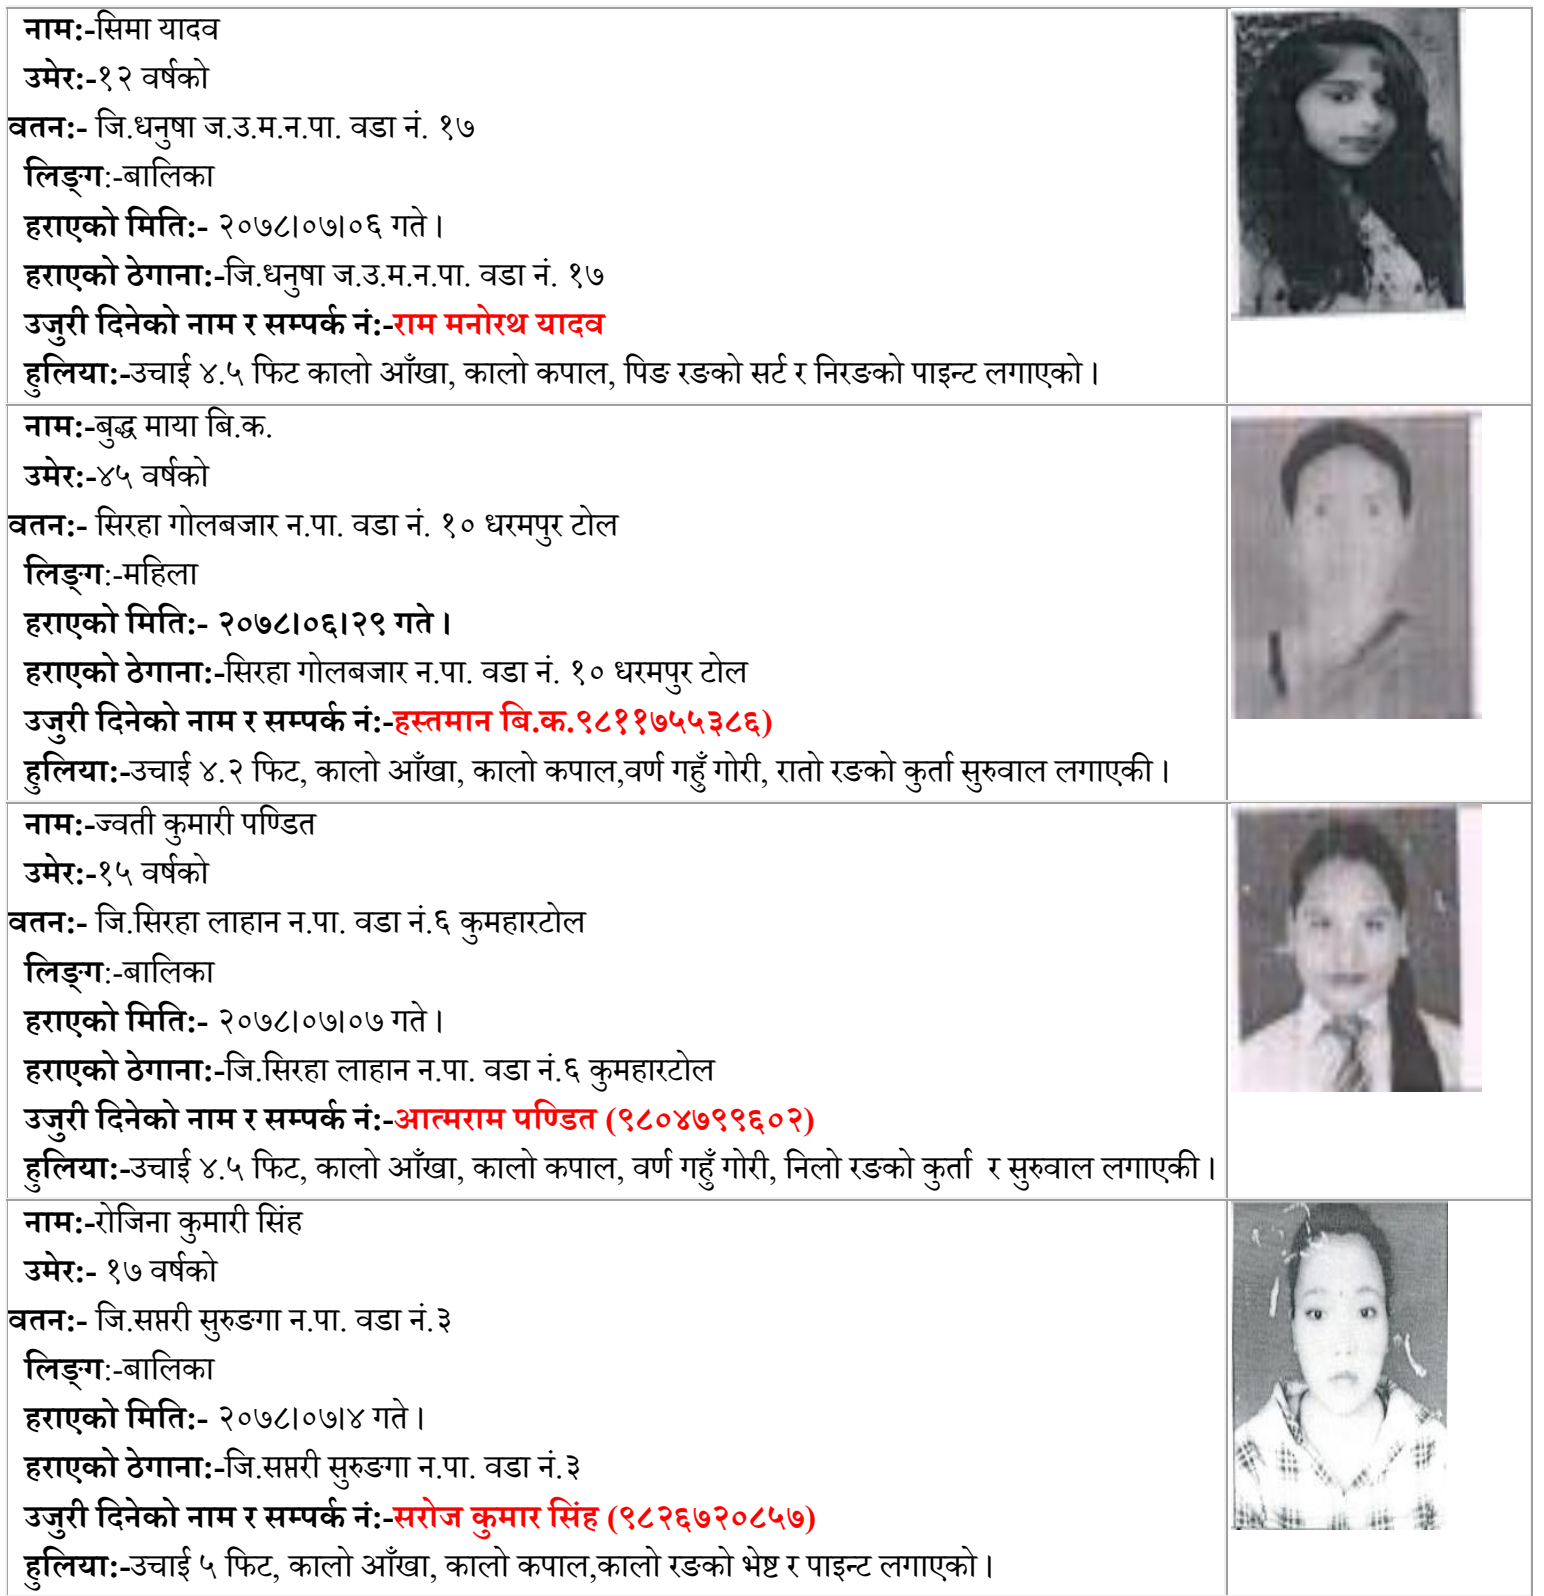 नाम:-सिमा यादव
उमेर:-१२ वर्षको
वतन:- जि.धनुषा ज.उ.म.न.पा. वडा नं. १७
लिङ्ग:-बालिका
हराएको मिति:- २०७८।०७।०६ गते।
हराएको ठेगाना:-जि.धनुषा ज.उ.म.न.पा. वडा नं. १७
उजुरी दिनेको नाम र सम्पर्क नं:-राम मनोरथ यादव
हुलिया:-उचाई ४.५ फिट कालो आँखा, कालो कपाल, पिङ रङको सर्ट र निरङको पाइन्ट लगाएको।
नाम:-बुद्ध माया बि.क.
उमेर:-४५ वर्षको
वतन:- सिरहा गोलबजार न.पा. वडा नं. १० धरमपुर टोल
लिङ्ग:-महिला
हराएको मिति:- २०७८।०६।२९ गते।
हराएको ठेगाना:-सिरहा गोलबजार न.पा. वडा नं. १० धरमपुर टोल
उजुरी दिनेको नाम र सम्पर्क नं:-हस्तमान बि.क.९८११७५५३८६)
हुलिया:-उचाई ४.२ फिट, कालो आँखा, कालो कपाल,वर्ण गहुँ गोरी, रातो रङको कुर्ता सुरुवाल लगाएकी।
नाम:-ज्वती कुमारी पण्डित
उमेर:-१५ वर्षको
वतन:- जि.सिरहा लाहान न.पा. वडा नं.६ कुमहारटोल
लिङ्ग:-बालिका
हराएको मिति:- २०७८।०७।०७ गते।
हराएको ठेगाना:-जि.सिरहा लाहान न.पा. वडा नं.६ कुमहारटोल
उजुरी दिनेको नाम र सम्पर्क नं:-आत्मराम पण्डित (९८०४७९९६०२)
हुलिया:-उचाई ४.५ फिट, कालो आँखा, कालो कपाल, वर्ण गहुँ गोरी, निलो रङको कुर्ता  र सुरुवाल लगाएकी।
नाम:-रोजिना कुमारी सिंह
उमेर:- १७ वर्षको
वतन:- जि.सप्तरी सुरुङगा न.पा. वडा नं.३
लिङ्ग:-बालिका
हराएको मिति:- २०७८।०७।४ गते।
हराएको ठेगाना:-जि.सप्तरी सुरुङगा न.पा. वडा नं.३
उजुरी दिनेको नाम र सम्पर्क नं:-सरोज कुमार सिंह (९८२६७२०८५७)
हुलिया:-उचाई ५ फिट, कालो आँखा, कालो कपाल,कालो रङको भेष्ट र पाइन्ट लगाएको।